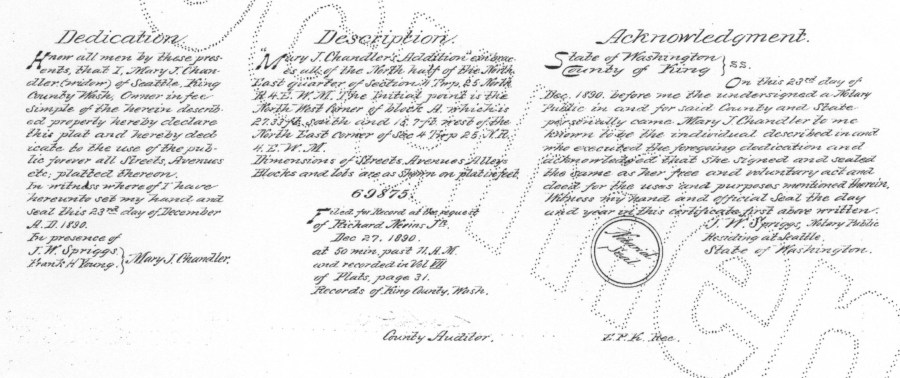 Dedication.
Know all men by these pres-
ents, that I, Mary J. Chan-
dler (widow) of Seattle, King
County Wash. Owner in fee
simple of the herein describ-
ed property hereby declare
this plat and hereby ded-
icate to the use of the pub-
lic forever all Streets, Avenues
etc; platted thereon.
In witness where of I have
hereunto set my hand and
seal this 23rd day of December
A. D. 1890.
In presence of
J. W. Spriggs
Frank H Young. } Mary J. Chandler.
Description.
"Mary J. Chandler's Addition" embrac-
es all of the North half of the North
East quarter of Section 4 Twp. 25 North
R. 4. E. W. M. The Initial point is the
North West corner of block A. which is
27.33 ft. south and 15.7 ft west of the
North East corner of Sec 4 Twp 25, N. R.
4. E. W. M.
Dimensions of Streets, Avenues Alleys
Blocks and lots are as shown on plat in feet.
69875.
Filed for Record at the request
of Richard Nevins Jr.
Dec 27. 1890.
at 50 min. past 11. A.M.
and recorded in Vol VII
of Plats, page 31.
Records of King County, Wash.
County Auditor.
Acknowledgment.
State of Washington
County of King } SS.
On this 23rd day of
Dec. 1890, before me the undersigned a Notary
Public in and for said County and State
personally came Mary J Chandler to me
known to be the individual described in and
who executed the foregoing dedication and
acknowledged that she signed and sealed
the same as her free and voluntary act and
deed for the uses and purposes mentioned therein,
Witness my hand and official Seal the day
and year in this certificate first above written.
J. W. Spriggs, Notary Public
Residing at Seattle,
State of Washington.
Notarial
Seal.